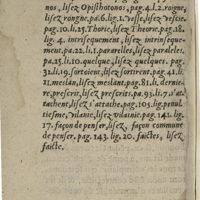 nos, lisez Opisthotonos, pag.4.l.2. roigne,
lisez rongne, pa.6.lig.1. vesse, lisez vescie.
pag.10.li.25. Thorie, lisez Theorie, pag.18.
lig. 4. intrisequement, lisez intrinseque-
ment, pa.22.li.1. pararelles, lisez paralleles.
pa.25.li.10. quelque, lisez quelques. pag.
31.li.19. sortoient, lisez sortiront, pag. 41. li.
11. mesilan, lisez meslant, pag.81.li. dernie-
re, present, lisez prescrits, pa.93.li.7. s'at-
tachent, lisez s'attache, pag.103.lig. penul-
tiesme, Vilanie, lisez vilainie, pag. 141. lig.
17. façon de penser, lisez, façon commune
de penser. pag. 143. lig. 20. faictes, lisez
faicte.